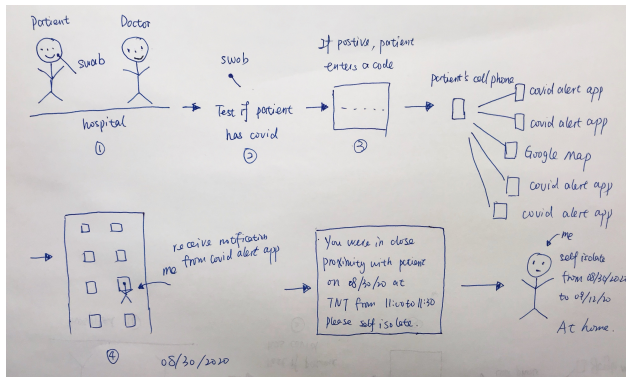 Patient
Doctor
swab
hospital
①
swob
Test if patient
has covid
②
If postive, patient
enters a code
- - - - -
③
patient's cellphone
covid alert app
covid alert app
Google map
covid alert app
covid alert app
receive notification
from covid alert app
me
④
08/30/2020
You were in close
proximity with patient
on 08/30/20 at
TNT from 11:00 to 11:30
Please self isolate.
me
self isolate
from 08/30/2020
to 09/12/20
At home.